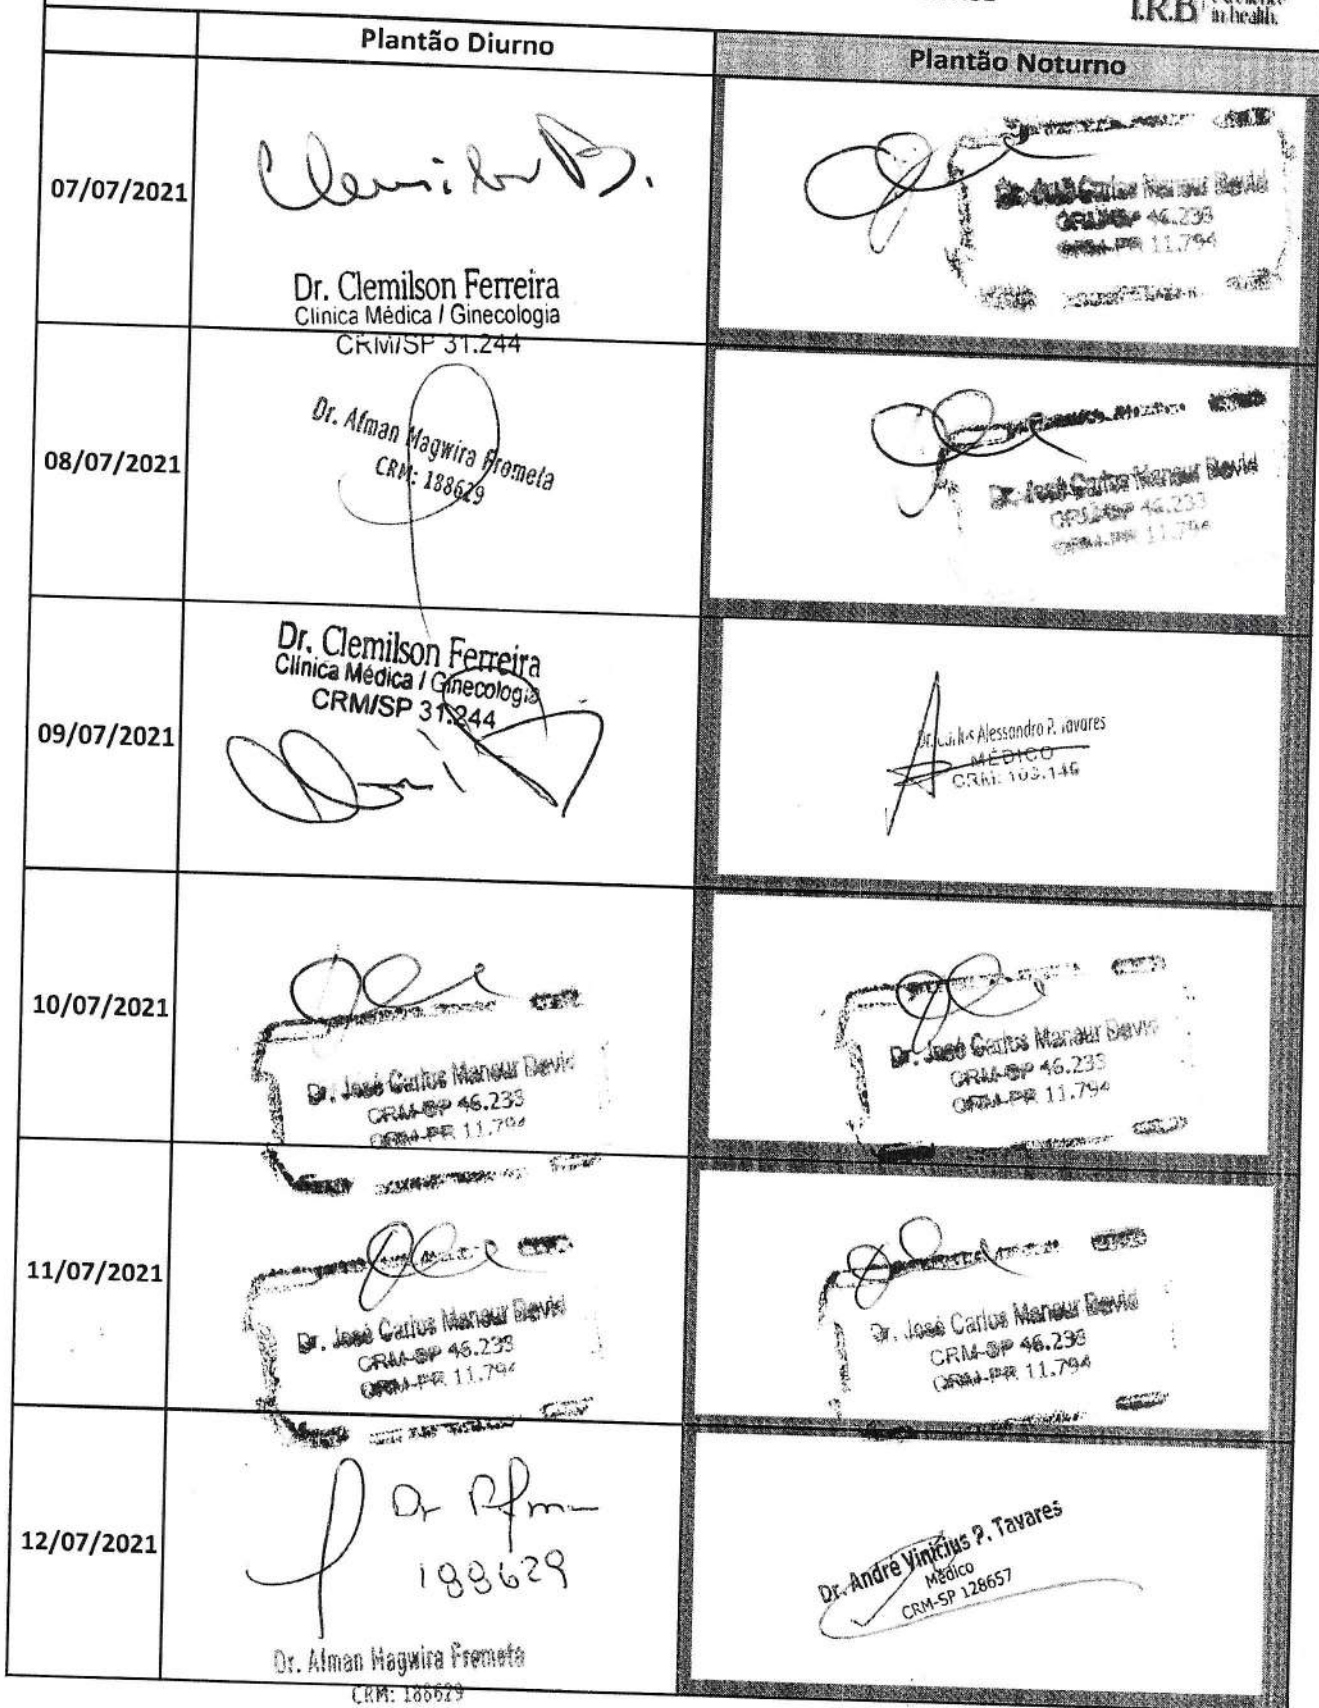 I.R.B
in health.
Plantão Diurno
Plantão Noturno
07/07/2021
Clemilson
Dr. Clemilson Ferreira
Clínica Médica / Ginecologia
CRM/SP 31.244
Dr. José Carlos Mansur David
CRM-SP 46.233
CRM-PR 11.794
08/07/2021
Dr. Afman Magwira Frometa
CRM: 188629
Dr. José Carlos Mansur David
CRM-SP 46.233
CRM-PR 11.794
09/07/2021
Dr. Clemilson Ferreira
Clínica Médica / Ginecologia
CRM/SP 31.244
Dr. Carlos Alessandro P. Tavares
MÉDICO
CRM: 103.146
10/07/2021
Dr. José Carlos Mansur David
CRM-SP 46.233
CRM-PR 11.794
Dr. José Carlos Mansur David
CRM-SP 46.233
CRM-PR 11.794
11/07/2021
Dr. José Carlos Mansur David
CRM-SP 46.233
CRM-PR 11.794
Dr. José Carlos Mansur David
CRM-SP 46.233
CRM-PR 11.794
12/07/2021
Dr Afman
188629
Dr. Afman Magwira Frometa
CRM: 188629
Dr. André Vinicius P. Tavares
Médico
CRM-SP 128657